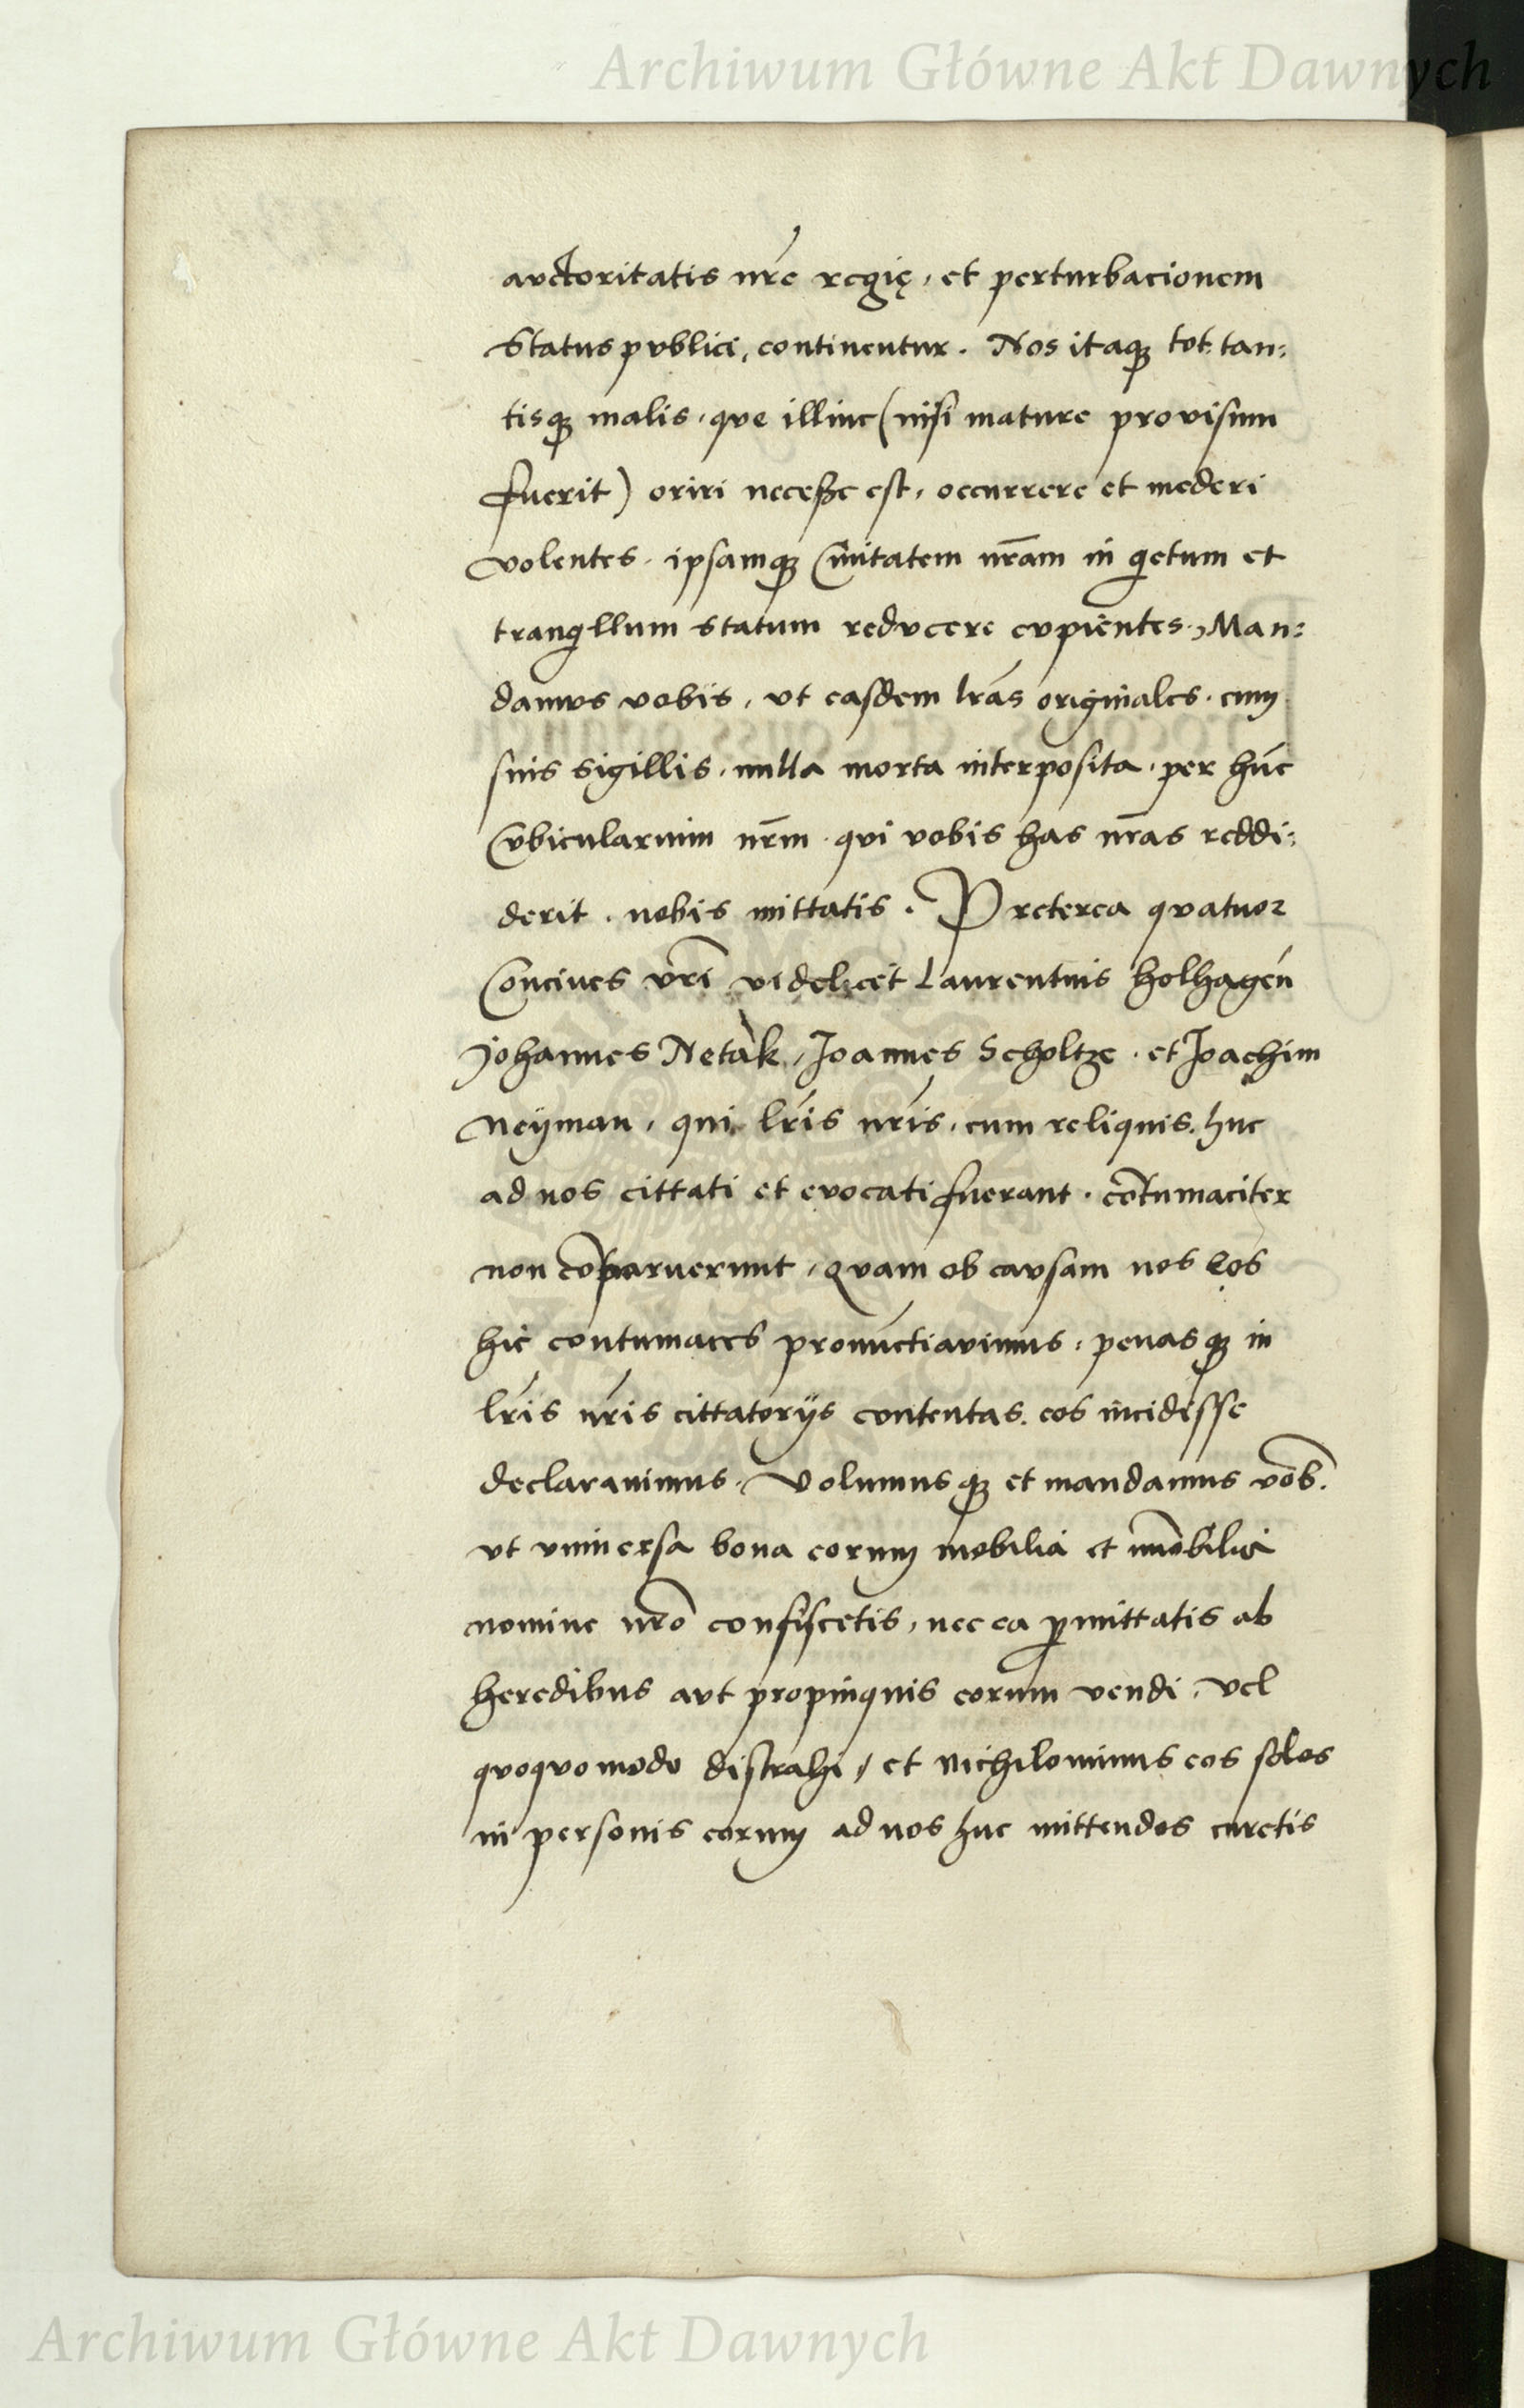 Archiwum Główne Akt Dawnych
auctoritatis nr̃e regię, et perturbacionem
Status publici, continentur. Nos itaq3 tot tan:
tisq3 malis, que illinc (nisi mature provisum
fuerit) oriri neceßе est, occurrere et mederi
volentes, ipsamq3 Civitatem nr̃am in quietum et
tranqillum statum reducere cupientes, Man:
damus vobis, ut easdem lr̃as originales, cum
suis sigillis, nulla morta interposita, per hũc
Cubicularium nr̃m qui vobis has nr̃as reddi:
derit, nobis mittatis. Preterea quatuor
Conciues vr̃i videlicet Laurentius holhagen
Johannes Netak, Joannes Scholtze, et Joachim
Neÿman, qui lr̃is nr̃is, cum reliquis, huc
ad nos cittati et evocati fuerant, cõtumaciter
non cõparuerunt, Quam ob causam nos eos
hic contumaces pronũctiavimus, penasq3 in
lr̃is nr̃is cittatorijs contentas, eos incidisse
declaravimus, Volumusq3 et mandamus vob.
ut universa bona eorum mobilia et im̃obilia
nomine nr̃o confiscetis, nec ea p̱mittatis ab
heredibus aut propinquis eorum vendi, vel
quoquomodo distrahi, et nichilominus eos solos
in personis eorum ad nos huc mittendos curetis
Archiwum Główne Akt Dawnych